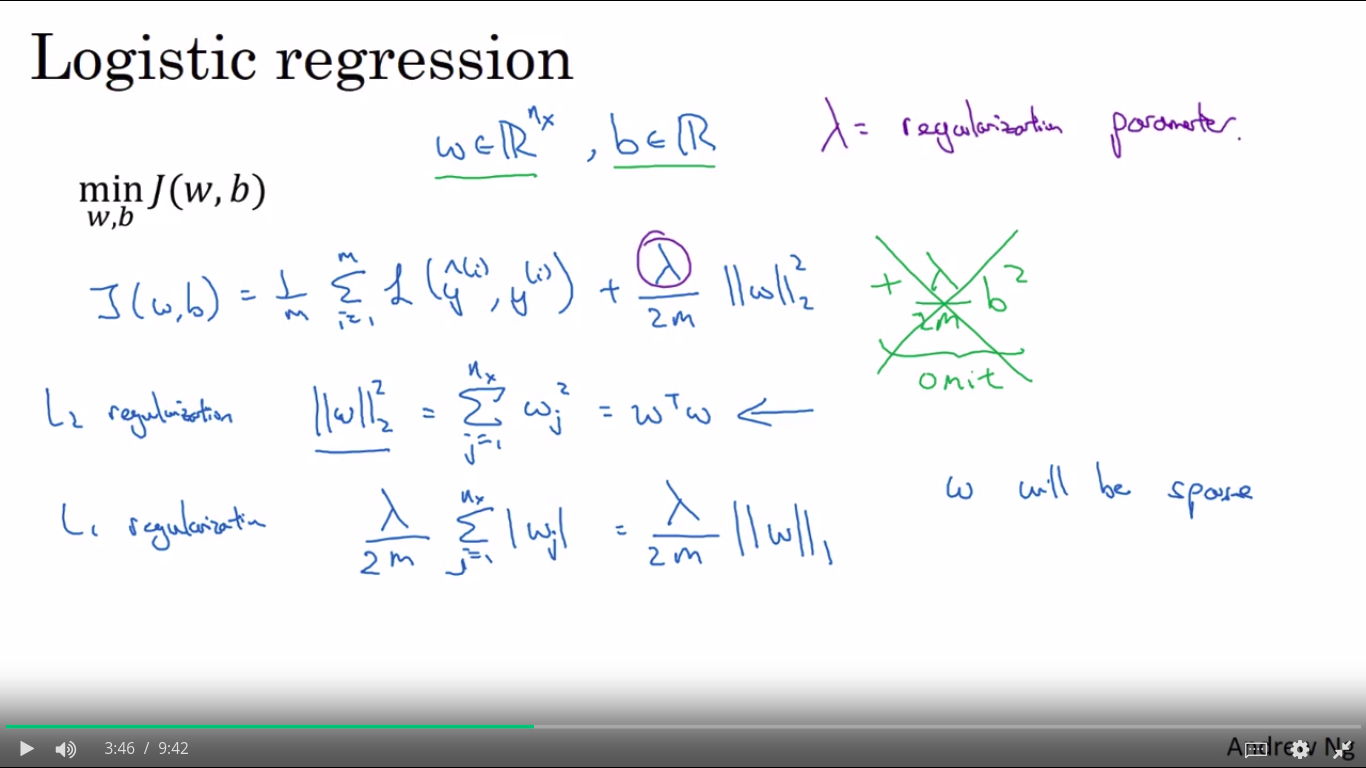 Logistic regression
w ∈ ℝ^{n_x}, b ∈ ℝ
λ = regularization parameter.
min_{w,b} J(w, b)
J(w,b) = 1/m Σ_{i=1}^{m} ℒ(ŷ^{(i)}, y^{(i)}) + λ/2m ||w||_2^2 + λ/2m b^2
omit
L_2 regularization ||w||_2^2 = Σ_{j=1}^{n_x} w_j^2 = w^T w ←
L_1 regularization λ/2m Σ_{j=1}^{n_x} |w_j| = λ/2m ||w||_1
w will be sparse
3:46 / 9:42
Andrew Ng